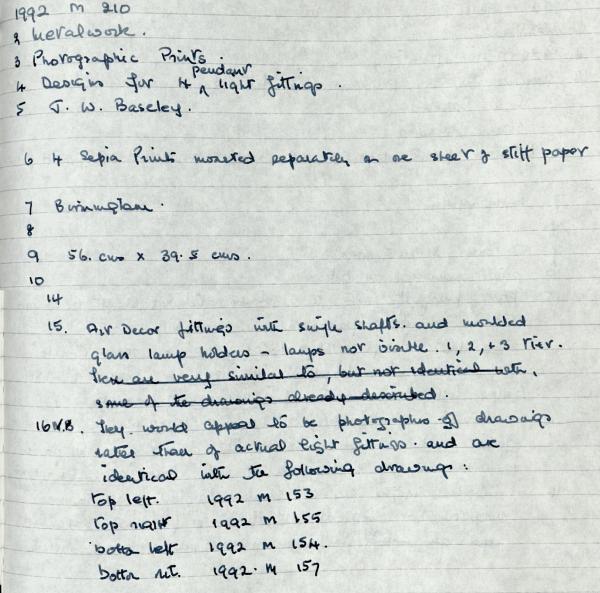 1992 M 210
2 Metalwork.
3 Photographic Prints.
4 Designs for 4 pendant light fittings.
5 J. W. Baseley.
6 4 Sepia Prints mounted separately on one sheet of stiff paper
7 Birmingham.
8
9 56. cms x 39.5 cms.
10
14
15. Art Decor fittings with single shafts. and moulded
glass lamp holders - lamps not visible. 1, 2, + 3 tier.
These are very similar to, but not identical with,
some of the drawings already described.
16 N.B. They would appear to be photographs of drawings
rather than of actual light fittings. and are
identical with the following drawings:
top left. 1992 M 153
top right 1992 M 155
bottom left 1992 M 154.
bottom rt. 1992. M 157